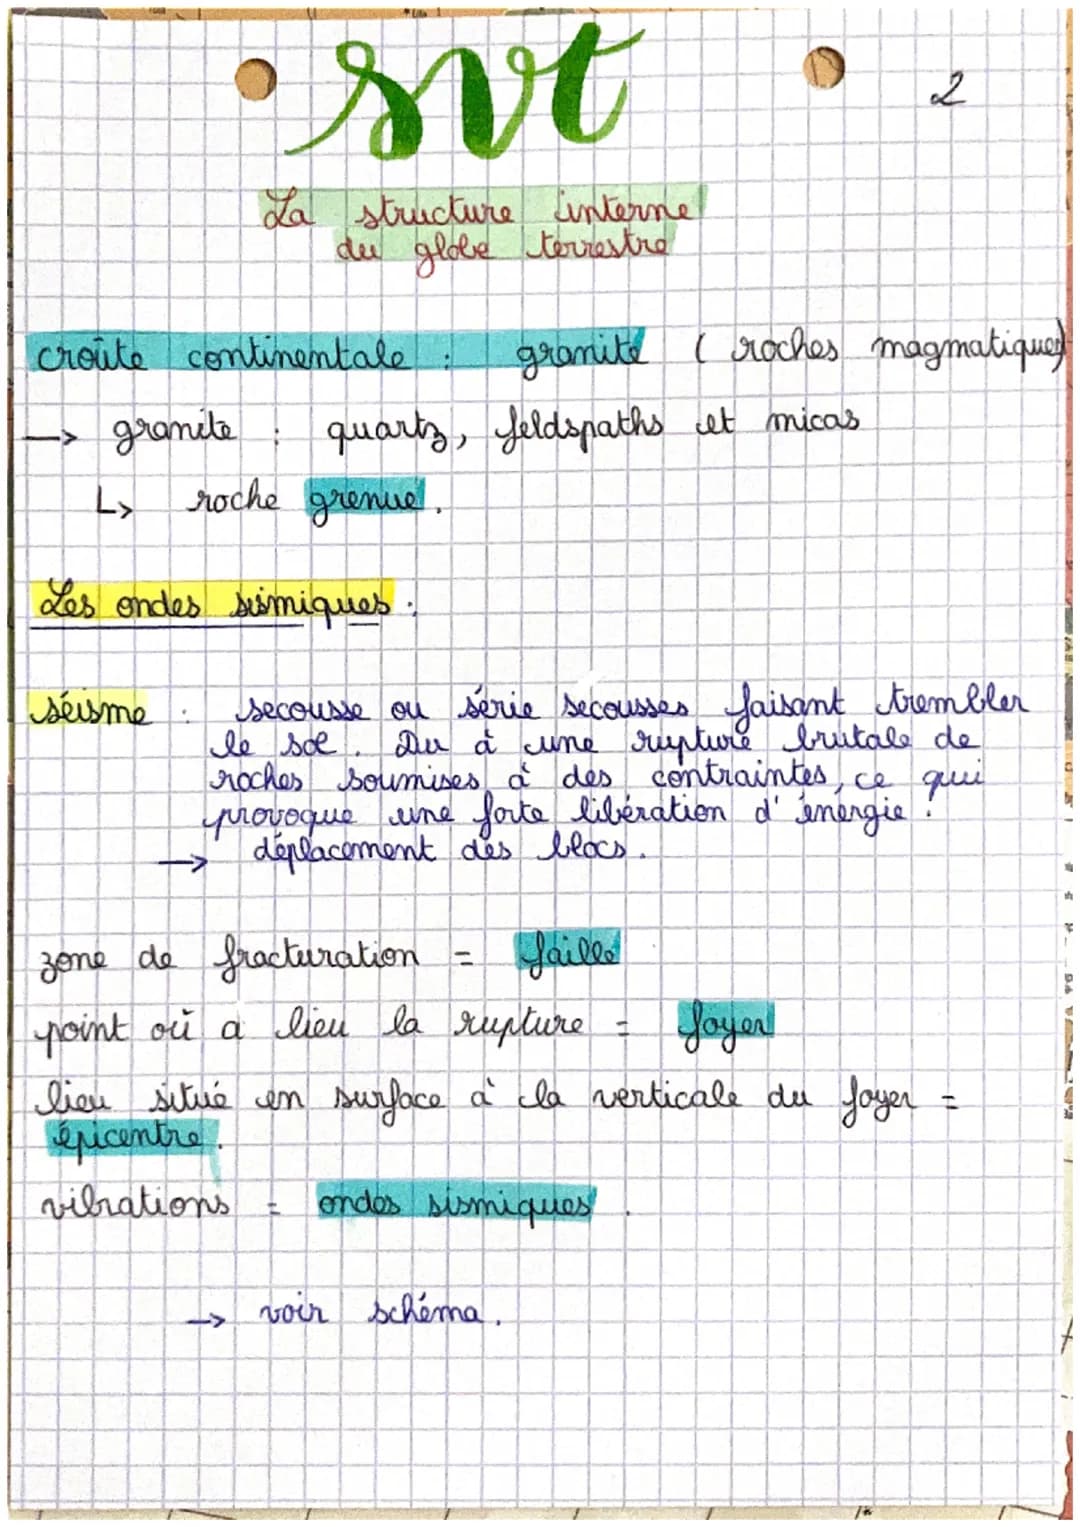 svt
2
La structure interne
du globe terrestre
croûte continentale : granite (roches magmatiques)
-> granite : quartz, feldspaths et micas
↳ roche grenue.
Les ondes sismiques :
séisme : secousse ou série secousses faisant trembler
le sol. Du à une rupture brutale de
roches soumises à des contraintes, ce qui
provoque une forte libération d'énergie :
-> déplacement des blocs.
zone de fracturation = faille
point où a lieu la rupture = foyer
lieu situé en surface à la verticale du foyer =
épicentre.
vibrations = ondes sismiques.
-> voir schéma.